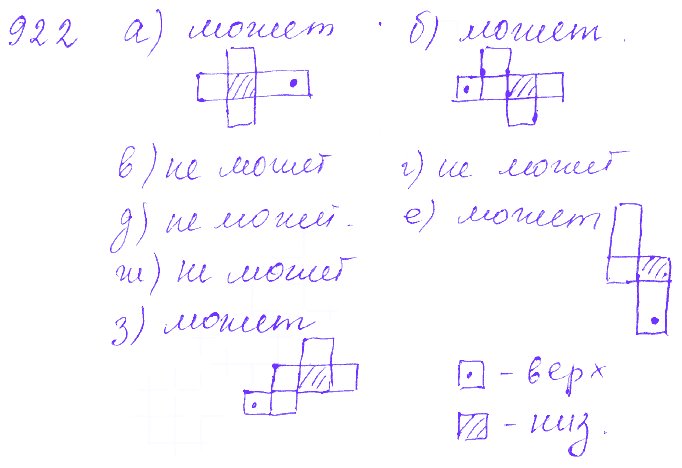 922 а) может б) может.
в) не может г) не может
д) не может. е) может
ж) не может
з) может
- верх
- низ.